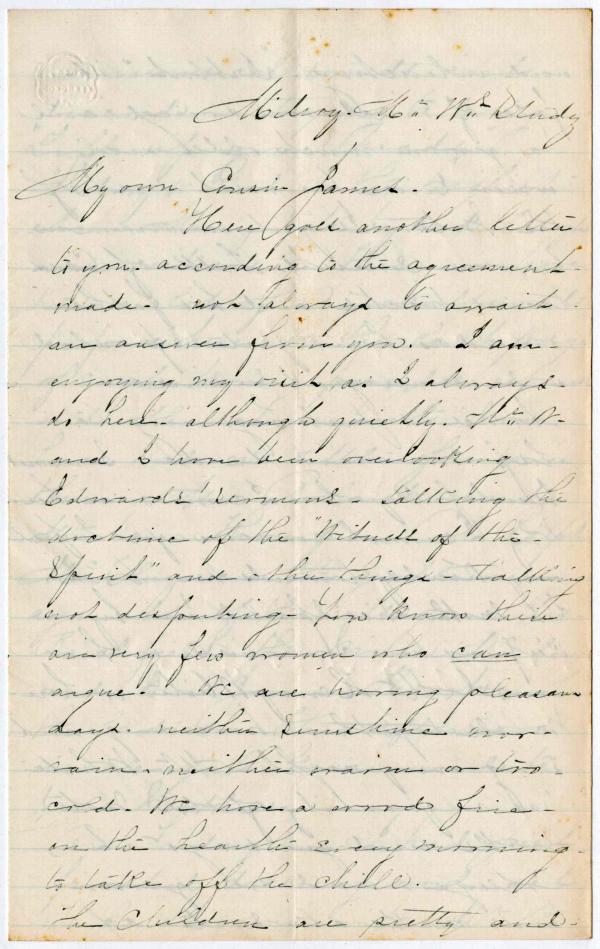 Milroy. Mr. Wm's Study
My own Cousin James.
Here goes another letter
to you. according to the agreement
made - not always to await
an answer from you. I am
enjoying my visit as I always
do here - although quietly. Mr. W-
and I have been overlooking
Edwards' sermons - talking the
doctrine of the "Witness of the
Spirit" and other things - talking
not desputing - You know there
are very few women who can
argue. We are having pleasant
days. neither sunshine nor
rain. neither warm or too
cold. We have a wood fire
on the hearth every morning
to take off the chill.
The children are pretty and